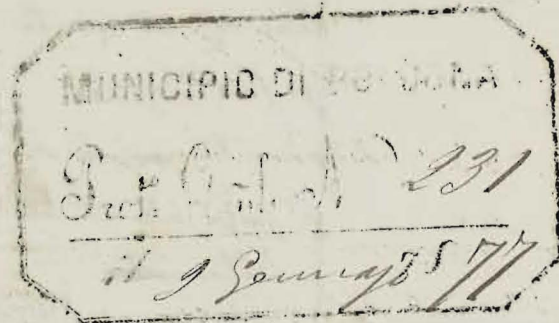 MUNICIPIO DI BOLOGNA
Prot. 231
il 9 Gennajo 1877